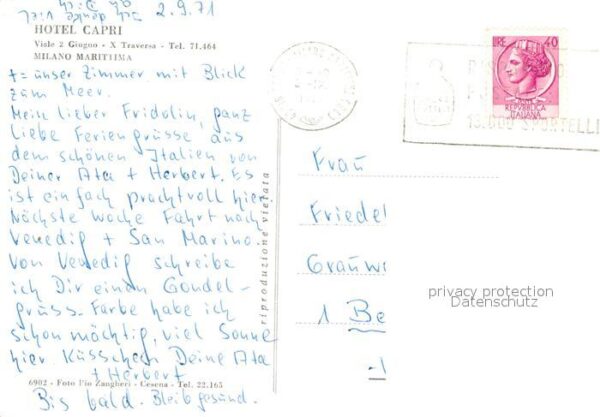 2.9.71
Ich denke viel
an Dich
HOTEL CAPRI
Viale 2 Giugno - X Traversa - Tel. 71.464
MILANO MARITTIMA
+ = unser Zimmer mit Blick
zum Meer.
Mein lieber Fridolin, ganz
liebe Feriengrüsse aus
dem schönen Italien von
Deiner Ata + Herbert. Es
ist einfach prachtvoll hier
Nächste Woche Fahrt nach
Venedig + San Marino.
Von Venedig schreibe
ich Dir einen Gondel-
gruss. Farbe habe ich
schon mächtig, viel Sonne
hier Küsschen Deine Ata
+ Herbert
6902 - Foto Pio Zangheri - Cesena - Tel. 22.165
Bis bald. Bleib gesund.
riproduzione vietata
LIRE 40
REPUBBLICA
ITALIANA
SPORTELLI
Frau
Friedel
Graunw
1 Be
-1
privacy protection
Datenschutz